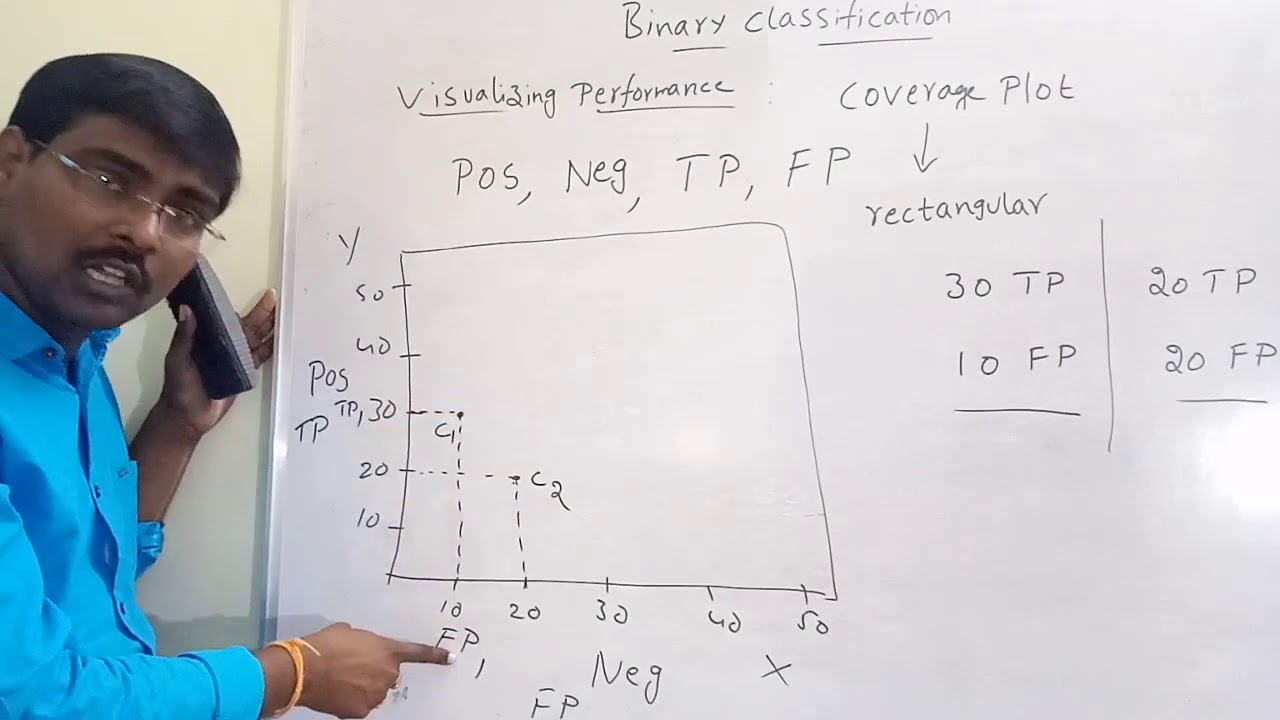 Binary Classification
Visualizing Performance : Coverage Plot
Pos, Neg, TP, FP
rectangular
30 TP 20 TP
10 FP 20 FP
Y
50
40
Pos
TP TP, 30
20
10
C1
C2
10 20 30 40 50
FP,
Neg X
FP